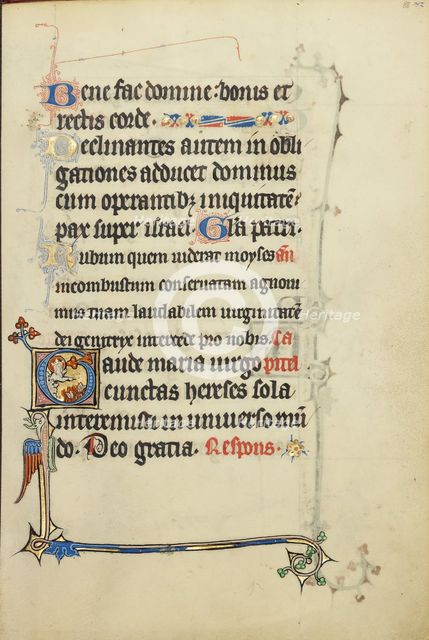 Bene fac domine: bonis et
rectis corde.
Declinantes autem in obli
gationes adducet dominus
cum operantibz iniquitatē
pax super israel. Gl̄a patri.
Rubrum quem viderat moyses an̄
incombustum conservatam agnoui
mus tuam laudabilem uirginitatē
dei genitrix intercede pro nobis. Ca
Gaude maria uirgo pitel
cunctas hereses sola
interemisti in universo mū
do. Deo gracia. Respons.
Heritage